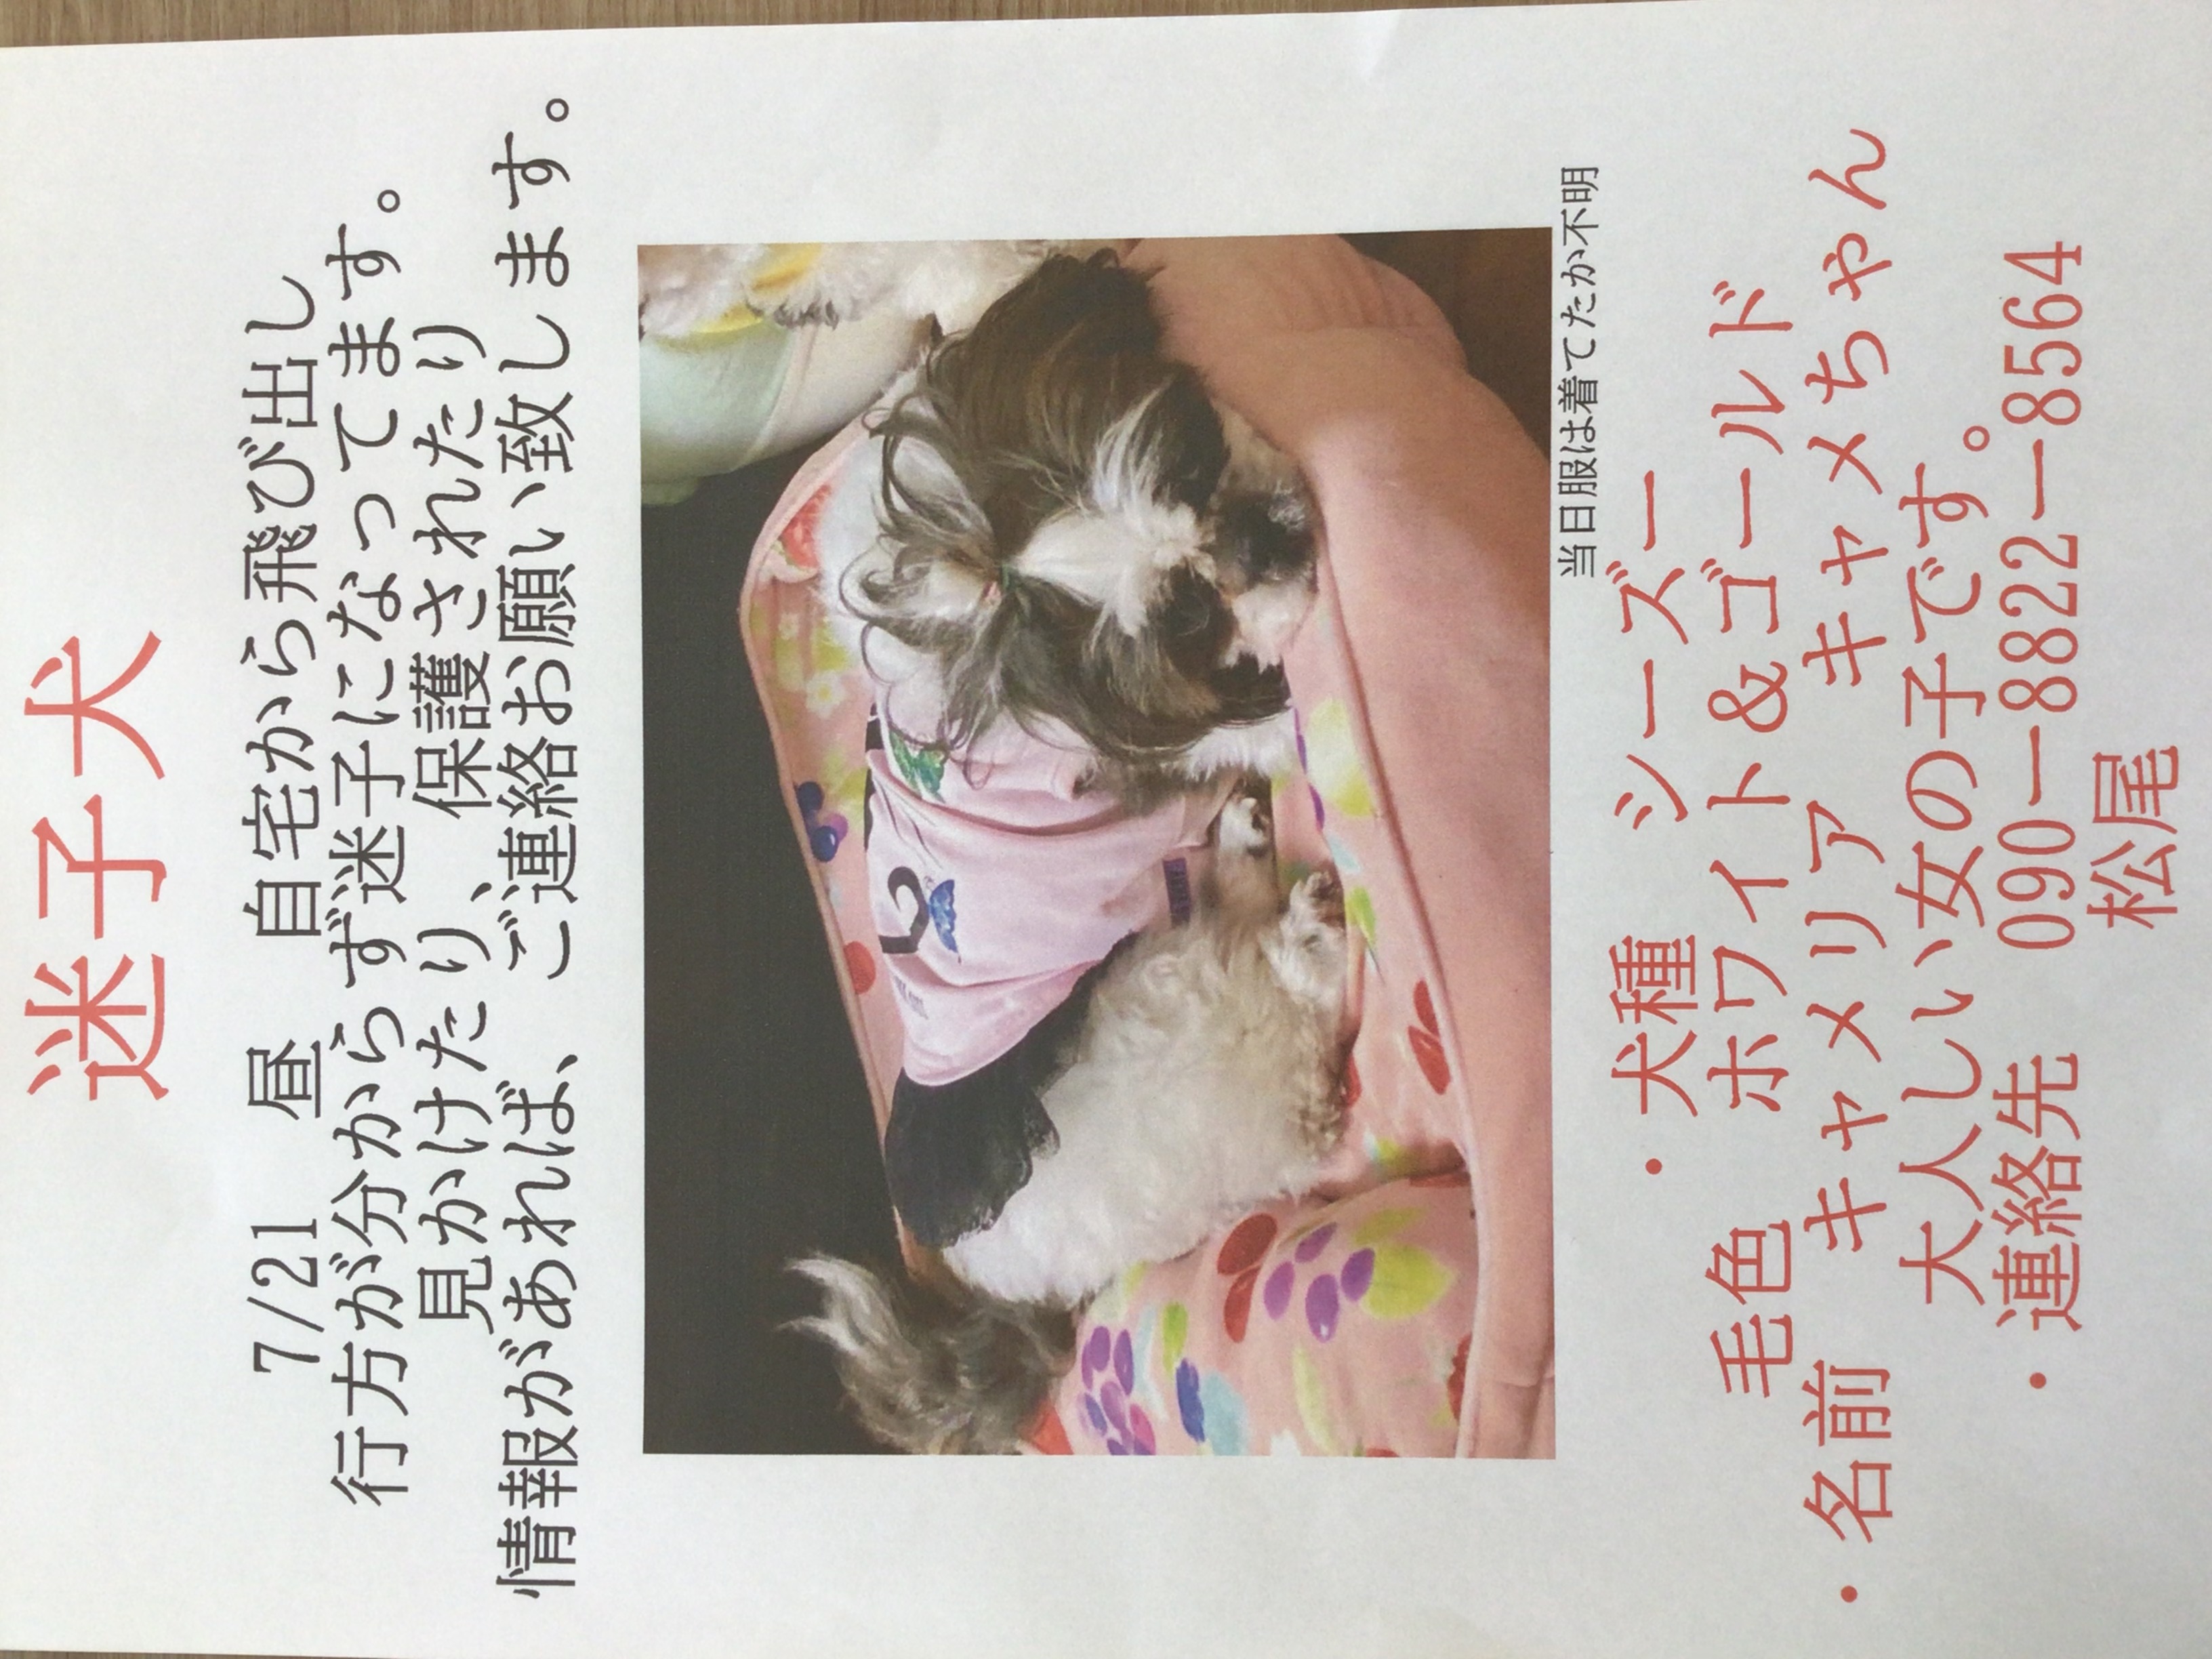 迷子犬
7/21　昼　自宅から飛び出し
行方が分からず迷子になってます。
見かけたり、保護されたり
情報があれば、ご連絡お願い致します。
当日服は着てたか不明
・犬種　シーズー
毛色　ホワイト＆ゴールド
・名前　キャメリア　キャメちゃん
大人しい女の子です。
・連絡先　090ー8822ー8564
松尾